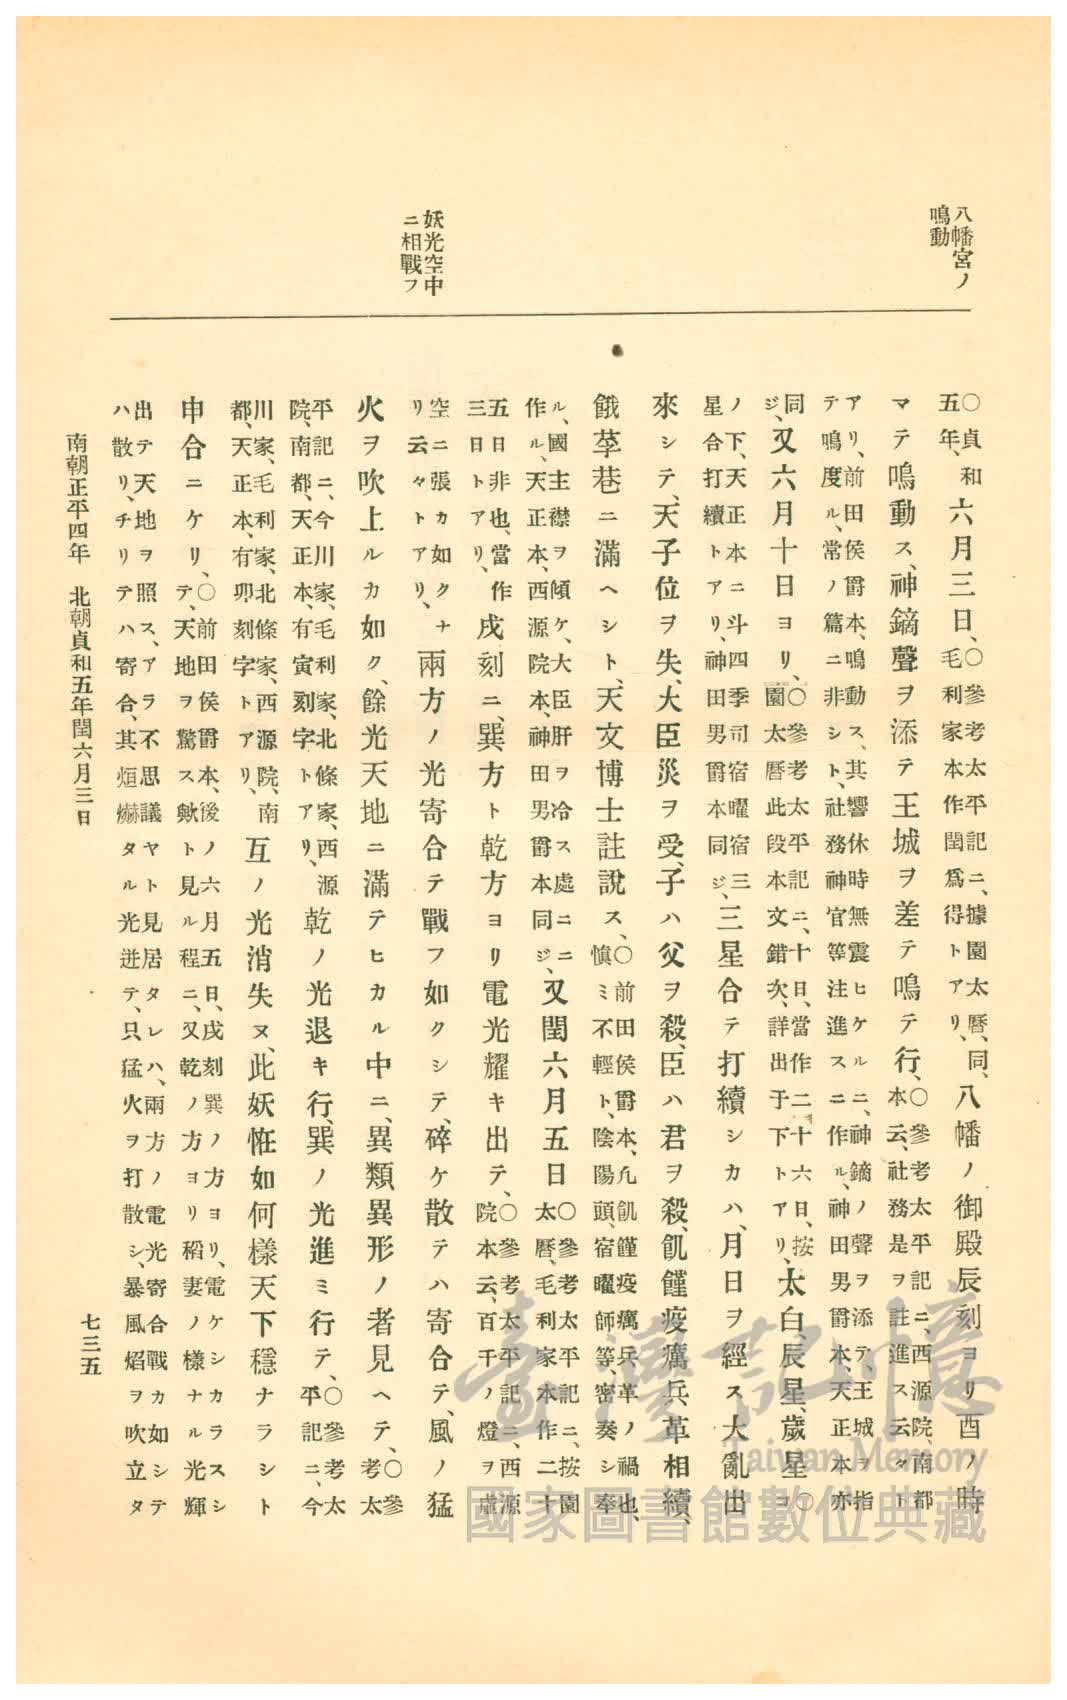 八幡宮ノ
鳴動
妖光空中
ニ相戰フ
〇貞和五年、六月三日、〇參考太平記ニ、據園太曆、同、毛利家本作閏爲得トアリ、八幡ノ御殿辰刻ヨリ酉ノ時
マテ鳴動ス、神鏑聲ヲ添テ王城ヲ差テ鳴テ行、〇參考太平記ニ、西源院、南都本云、社務是ヲ註進ス云々ト
アリ、前田侯爵本、鳴動ス、其響休時無震ヒケルニ、神鏑ノ聲ヲ添テ、王城ヲ指テ鳴度ル、常ノ篇ニ非シト、社務神官等注進スニ作ル、神田男爵本、天正本亦
同ジ、又六月十日ヨリ、〇參考太平記ニ、十日、當作二十六日、按園太曆此段本文錯次、詳出于下トアリ、太白、辰星、歲星〇コ
ノ下、天正本ニ斗四季司宿曜宿三星合打續トアリ、神田男爵本同ジ、三星合テ打續シカハ、月日ヲ經ス大亂出
來シテ、天子位ヲ失、大臣災ヲ受、子ハ父ヲ殺、臣ハ君ヲ殺、飢饉疫癘兵革相續、
餓莩巷ニ滿ヘシト、天文博士註說ス、〇前田侯爵本、凢飢饉疫癘兵革ノ禍也、愼ミ不輕ト、陰陽頭、宿曜師等、密奏シ奉
ル、國主襟ヲ傾ケ、大臣肝ヲ冷ス處ニニ作ル、天正本、西源院本、神田男爵本同ジ、又閏六月五日〇參考太平記ニ、按園太曆、毛利家本作二十
五日非也、當作三日トアリ、戌刻ニ、巽方ト乾方ヨリ電光耀キ出テ、〇參考太平記ニ、西源院本云、百千ノ燈ヲ虛
空ニ張カ如クナリ云々トアリ、兩方ノ光寄合テ戰フ如クシテ、碎ケ散テハ寄合テ、風ノ猛
火ヲ吹上ルカ如ク、餘光天地ニ滿テヒカル中ニ、異類異形ノ者見ヘテ、〇參考太
平記ニ、今川家、毛利家、北條家、西源院、南都、天正本、有寅刻字トアリ、乾ノ光退キ行、巽ノ光進ミ行テ、〇參考太平記ニ、今
川家、毛利家、北條家、西源院、南都、天正本、有卯刻字トアリ、互ノ光消失ヌ、此妖恠如何樣天下穩ナラシト
申合ニケリ、〇前田侯爵本、後ノ六月五日、戌刻巽ノ方ヨリ、電ケシカラスシテ、天地ヲ驚ス歟ト見ル程ニ、又乾ノ方ヨリ稻妻ノ樣ナル光輝
出テ天地ヲ照ス、アラ不思議ヤト見居タレハ、兩方ノ電光寄合戰カ如シテハ散リ、チリテハ寄合、其烜爀タル光迸テ、只猛火ヲ打散シ、暴風焰ヲ吹立タ
南朝正平四年　北朝貞和五年閏六月三日
七三五
臺灣記憶
Taiwan Memory
國家圖書館數位典藏